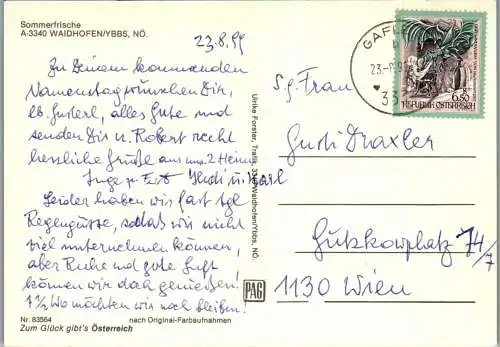 Sommerfrische
A-3340 WAIDHOFEN/YBBS, NÖ.
23.8.99
Zu Deinem kommenden
Namenstag wünschen Dir,
lb. Gusterl, alles Gute und
senden Dir u. Robert recht
herzliche Grüße aus uns. 2 Heimen
Inge u. Herdi u. Karl
Leider haben wir fast tgl.
Regengüsse, sodaß wir nicht
viel unternehmen können,
aber Ruhe und gute Luft
können wir doch genießen!
1 1/2 Wo möchten wir noch bleiben!
Nr. 83564
nach Original-Farbaufnahmen
Zum Glück gibt's Österreich
Ulrike Forster, Trafik, 3340 Waidhofen/Ybbs, NÖ.
PAG
GAFL
23.-8.99
33
6.50
REPUBLIK ÖSTERREICH
S.g. Frau
Gusti Draxler
Gutzkowplatz 74/7
1130 Wien